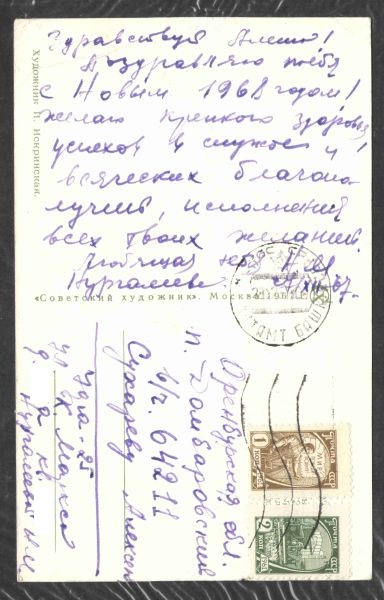 Здравствуй Алеша!
Поздравляю тебя
с Новым 1968 годом!
Желаю крепкого здоровья,
успехов в службе и
всяческих благопо-
лучий, исполнений
всех твоих желаний.
Любящая тебя Н М
Нургалеева. 27/XII 67.
Художник П. Искринская.
«Советский художник». Москва. 196
УФА
ПОЧТАМТ БАШ
Оренбургская обл.
п. Домбаровский
в/ч. 64211
Сухареву Алексе
Уфа-25
ул К. Маркса
д. кв.
Нургалеева Н.М.
почта СССР
1 КОП.
почта СССР
2 КОП.